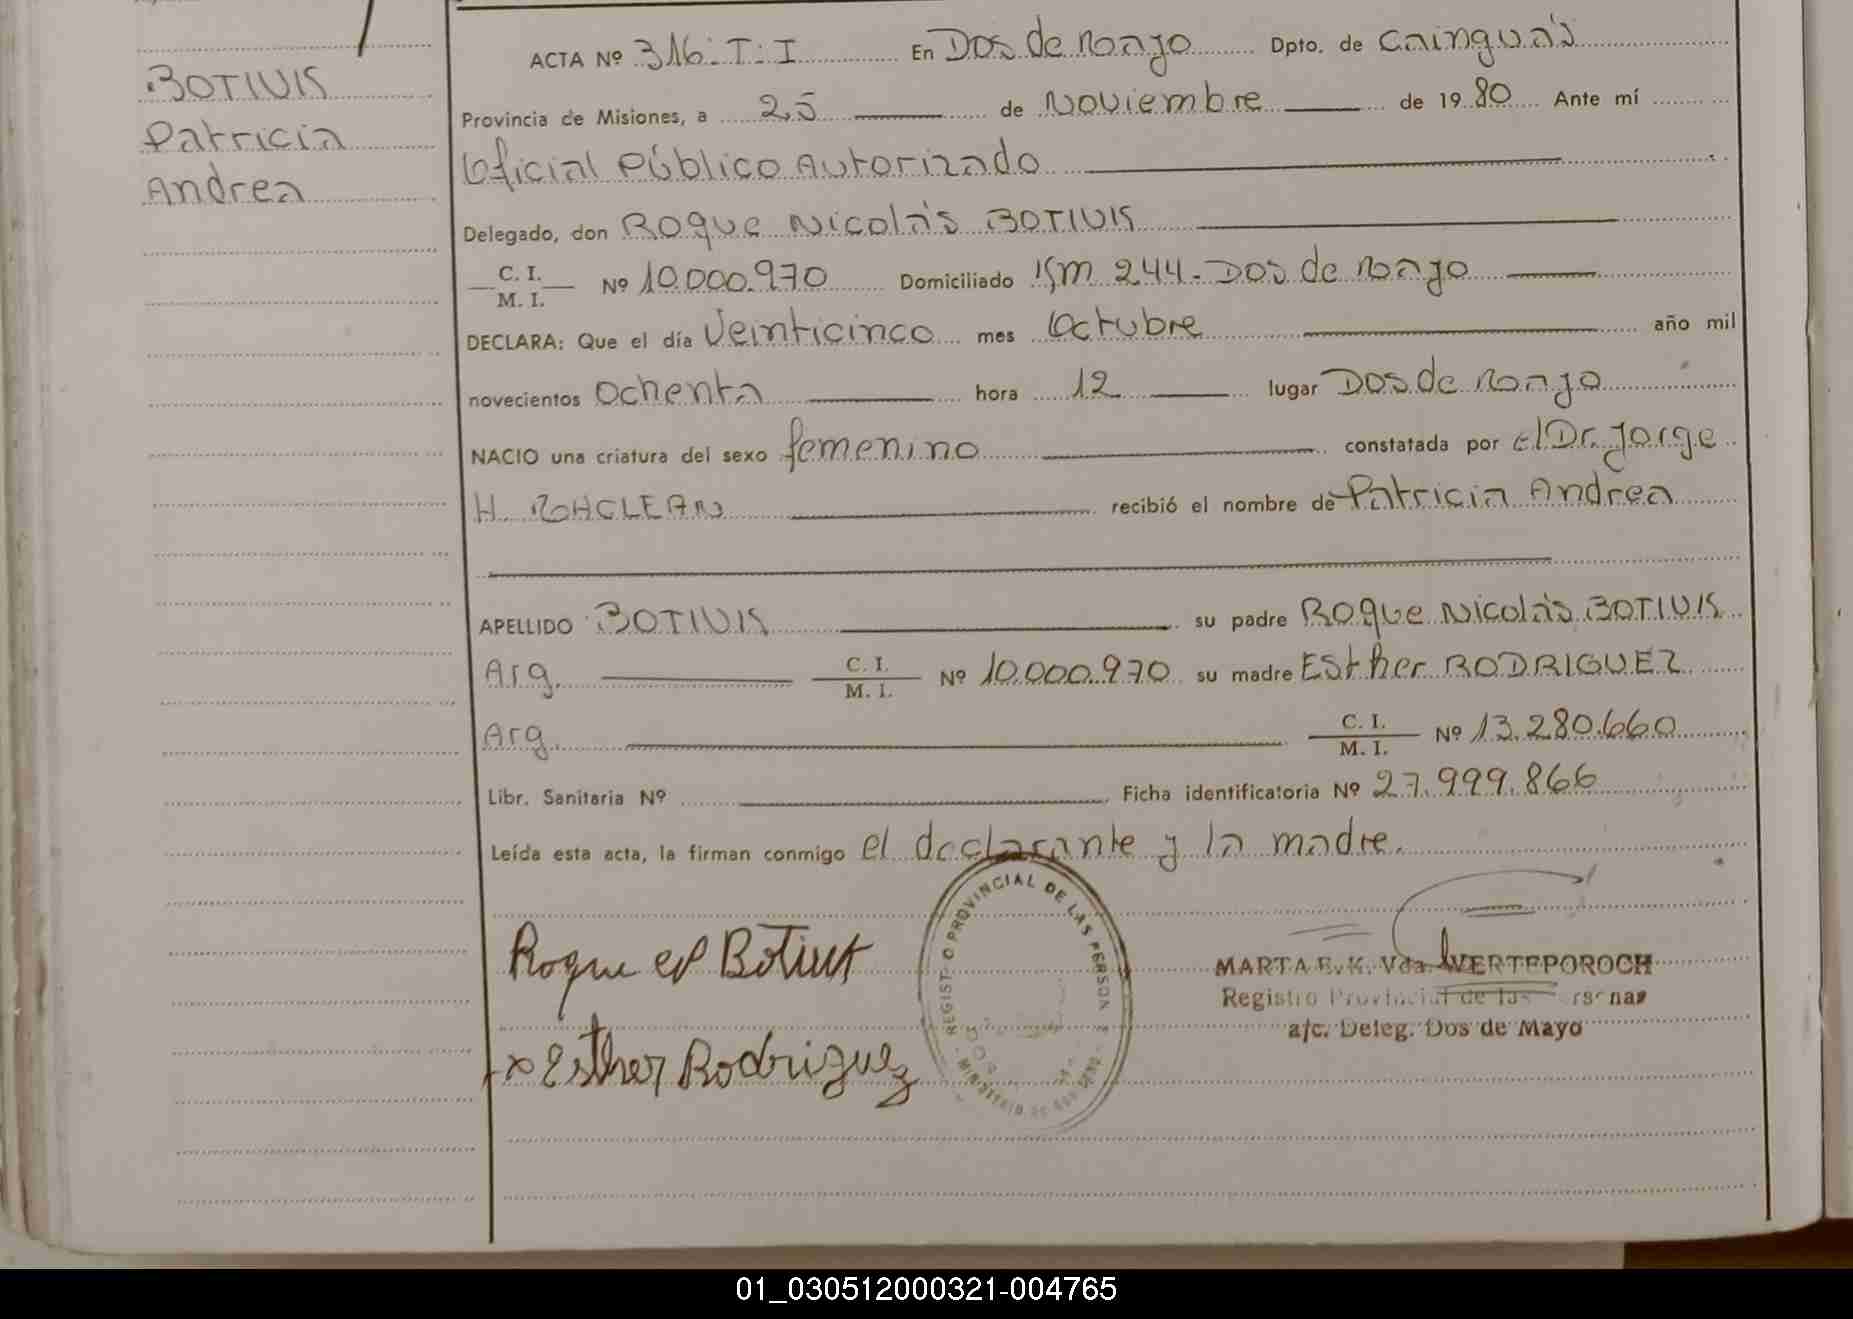 BOTIUK
Patricia
Andrea
ACTA Nº 316: T: I En Dos de Mayo Dpto. de Cainguás
Provincia de Misiones, a 25 de Noviembre de 1980 Ante mí
Oficial Público Autorizado
Delegado, don Roque Nicolás BOTIUK
C. I.
M. I.
Nº 10.000.970 Domiciliado Km 244-Dos de Mayo
DECLARA: Que el día Veinticinco mes Octubre año mil
novecientos Ochenta hora 12 lugar Dos de Mayo
NACIO una criatura del sexo femenino constatada por el Dr. Jorge
H. recibió el nombre de Patricia Andrea
APELLIDO BOTIUK su padre Roque Nicolás BOTIUK
Arg. C. I.
M. I.
Nº 10.000.970 su madre Esther RODRIGUEZ
Arg. C. I.
M. I.
Nº 13.280.660
Libr. Sanitaria Nº Ficha identificatoria Nº 27.999.866
Leída esta acta, la firman conmigo el declarante y la madre.
REGISTRO PROVINCIAL DE LAS PERSONAS
Roque Botiuk
x Esther Rodriguez
MARTA E. K. Vda. WERTEPOROCH
Registro Provincial de las Personas
a/c. Deleg. Dos de Mayo
01_030512000321-004765